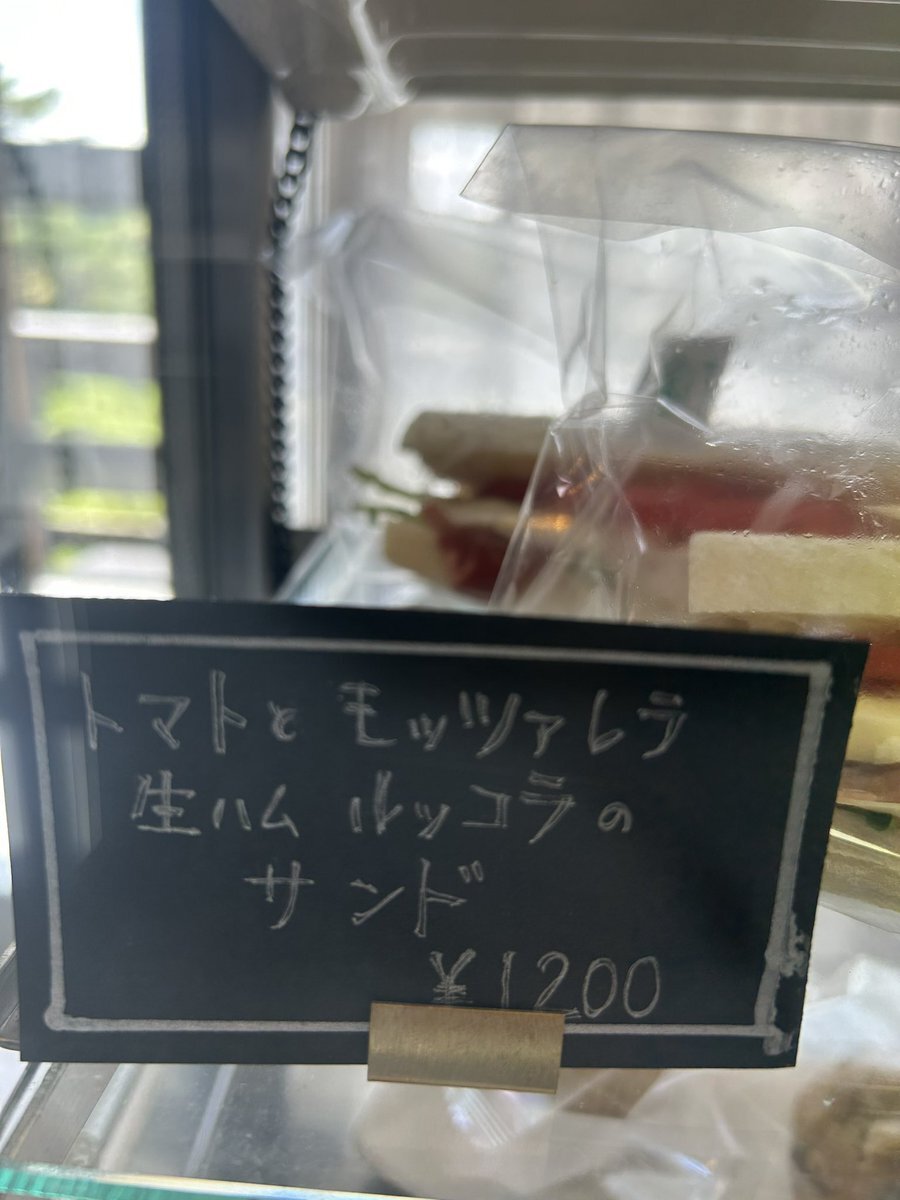 トマトと モッツァレラ
生ハム ルッコラの
サンド
¥1200